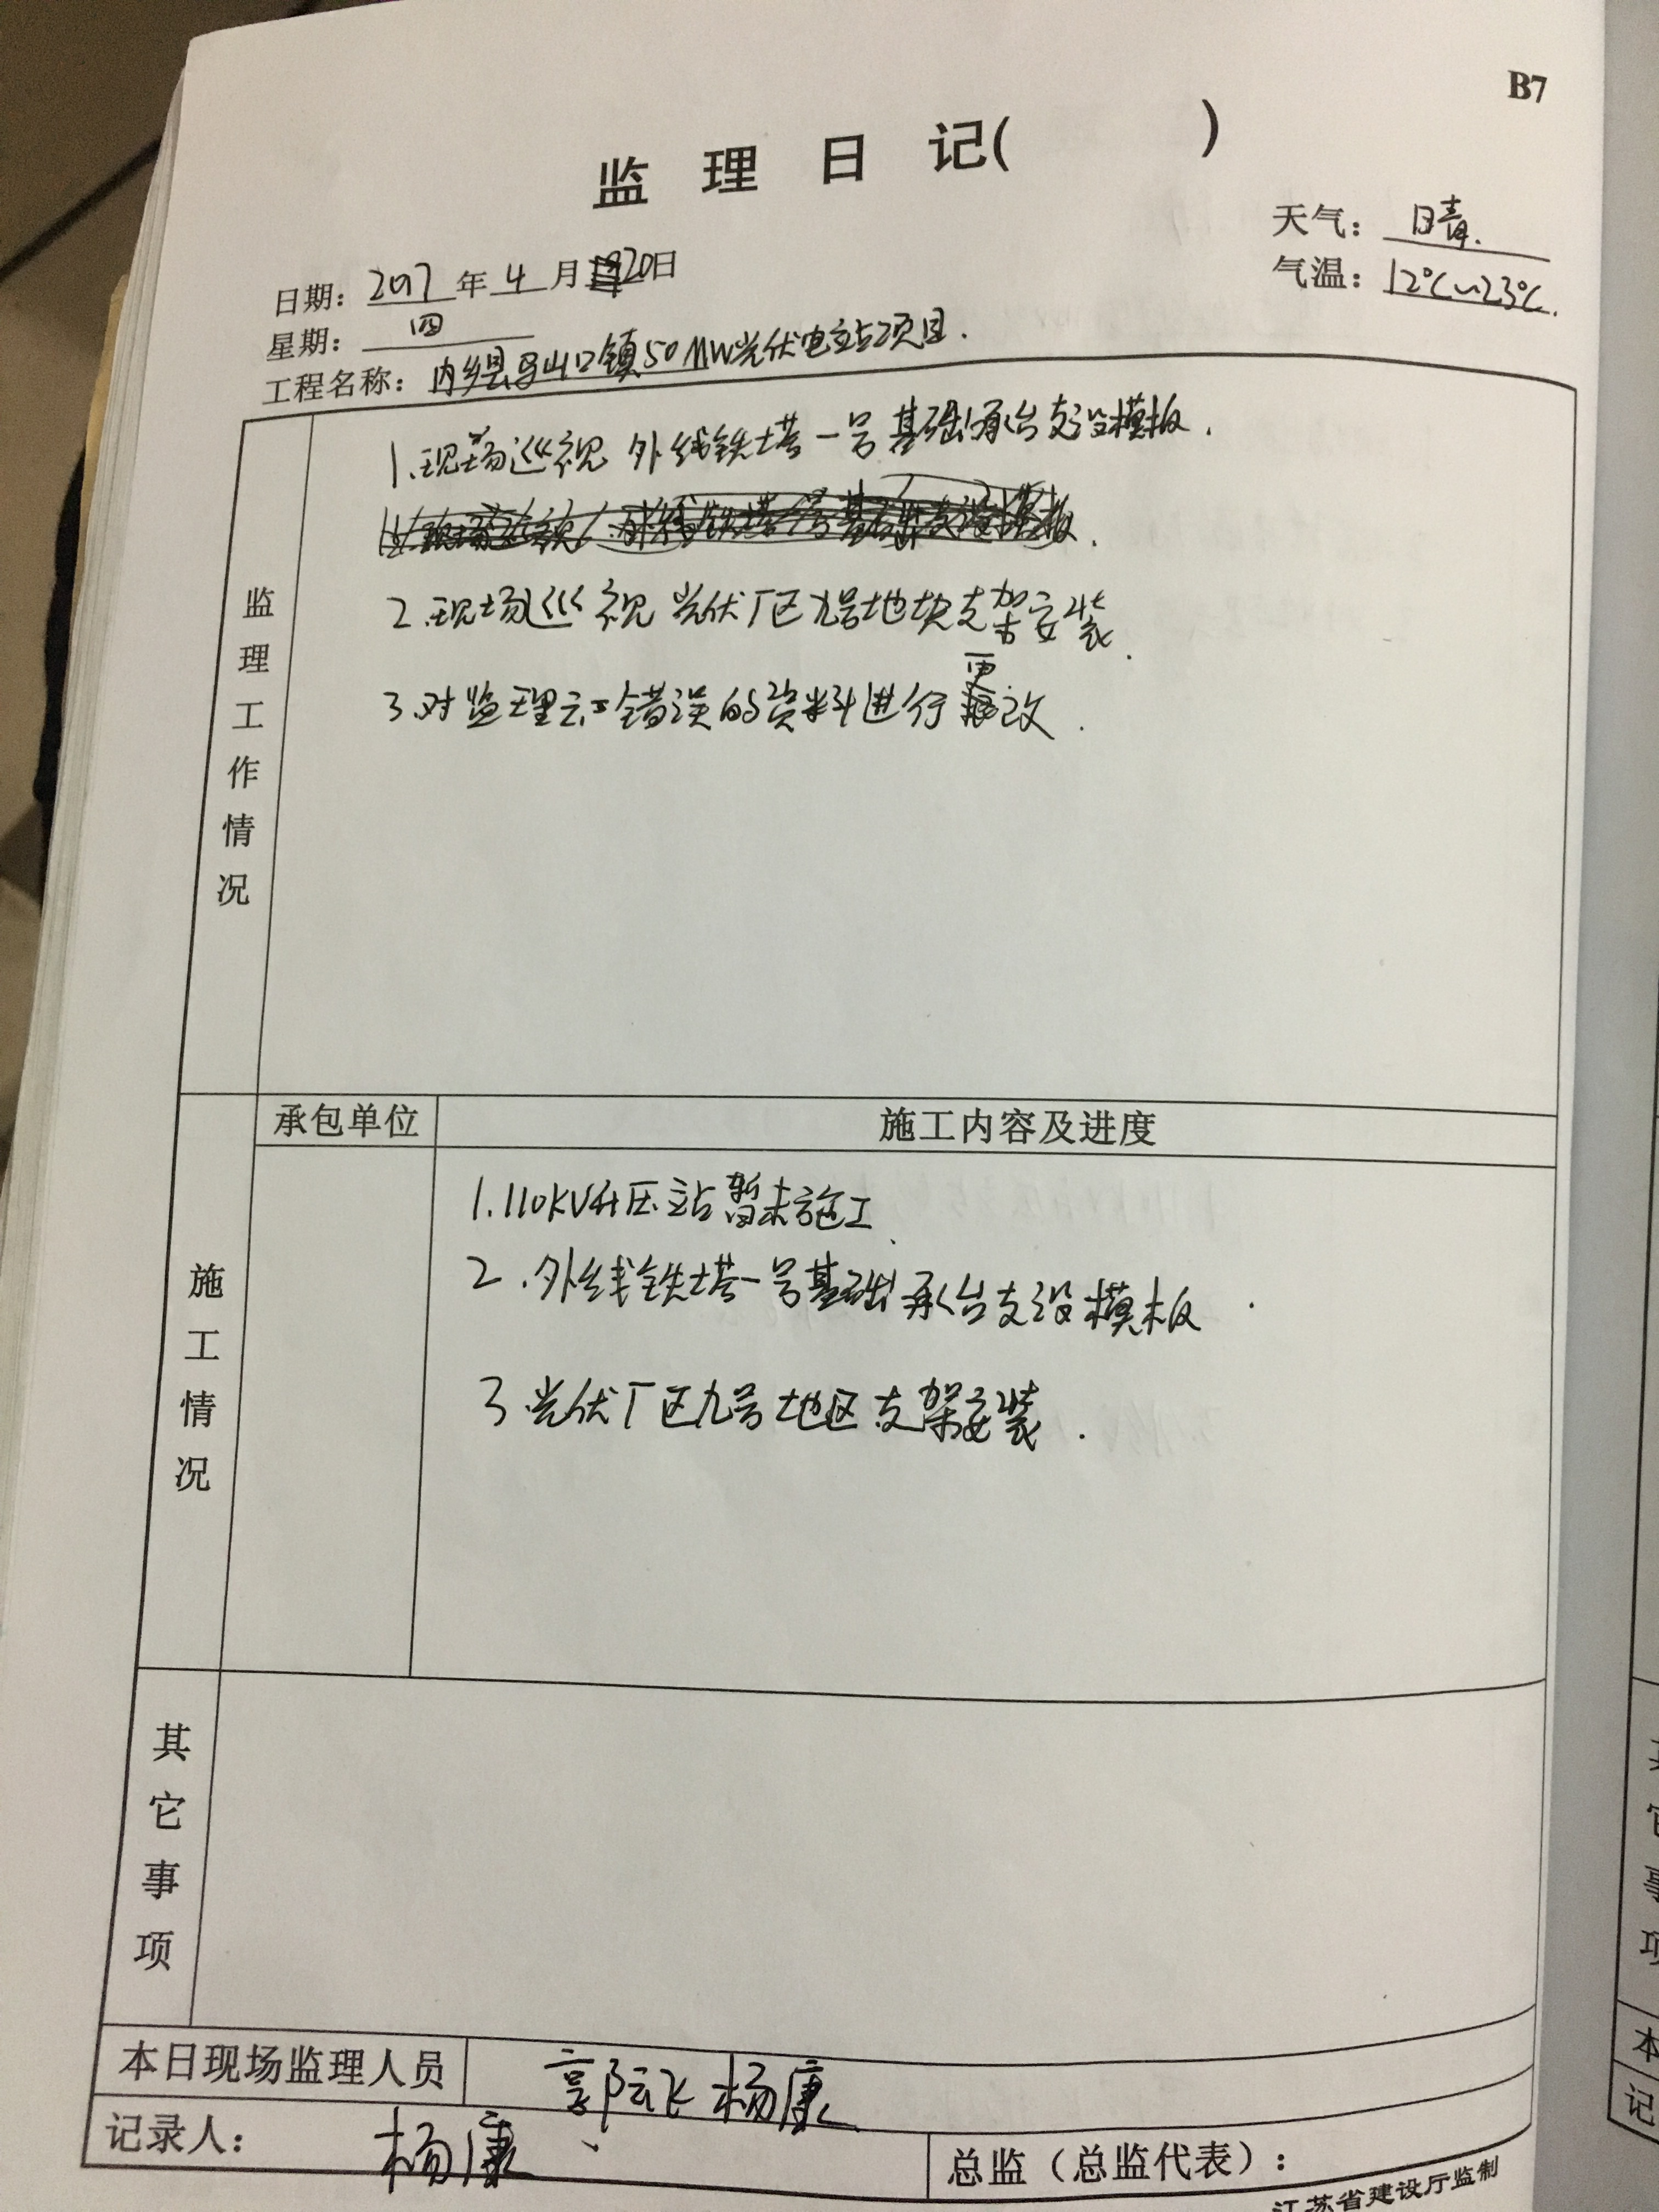 B7
监 理 日 记( )
天气: 晴.
日期: 2017 年 4 月 20日
气温: 12℃~23℃.
星期: 四
工程名称: 内乡县马山口镇50MW光伏电站项目.
监理工作情况
1.现场巡视 外线铁塔一号基础承台支设模板.
2.现场巡视 光伏厂区九号地块支架安装.
3.对监理 错误的资料进行更改.
施工情况
承包单位 施工内容及进度
1.110KV升压站暂未施工
2.外线铁塔一号基础承台支设模板.
3 光伏厂区九号地区支架安装.
其它事项
本日现场监理人员 郭 飞 杨康
记录人: 杨康
总监(总监代表):
江苏省建设厅监制